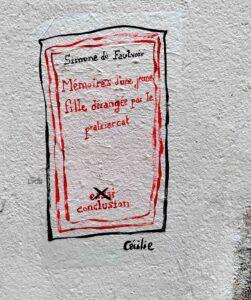 Simone de Fautvoir
Mémoires d'une jeune
fille dérangée par le
patriarcat
essai
conclusion
Cécilie